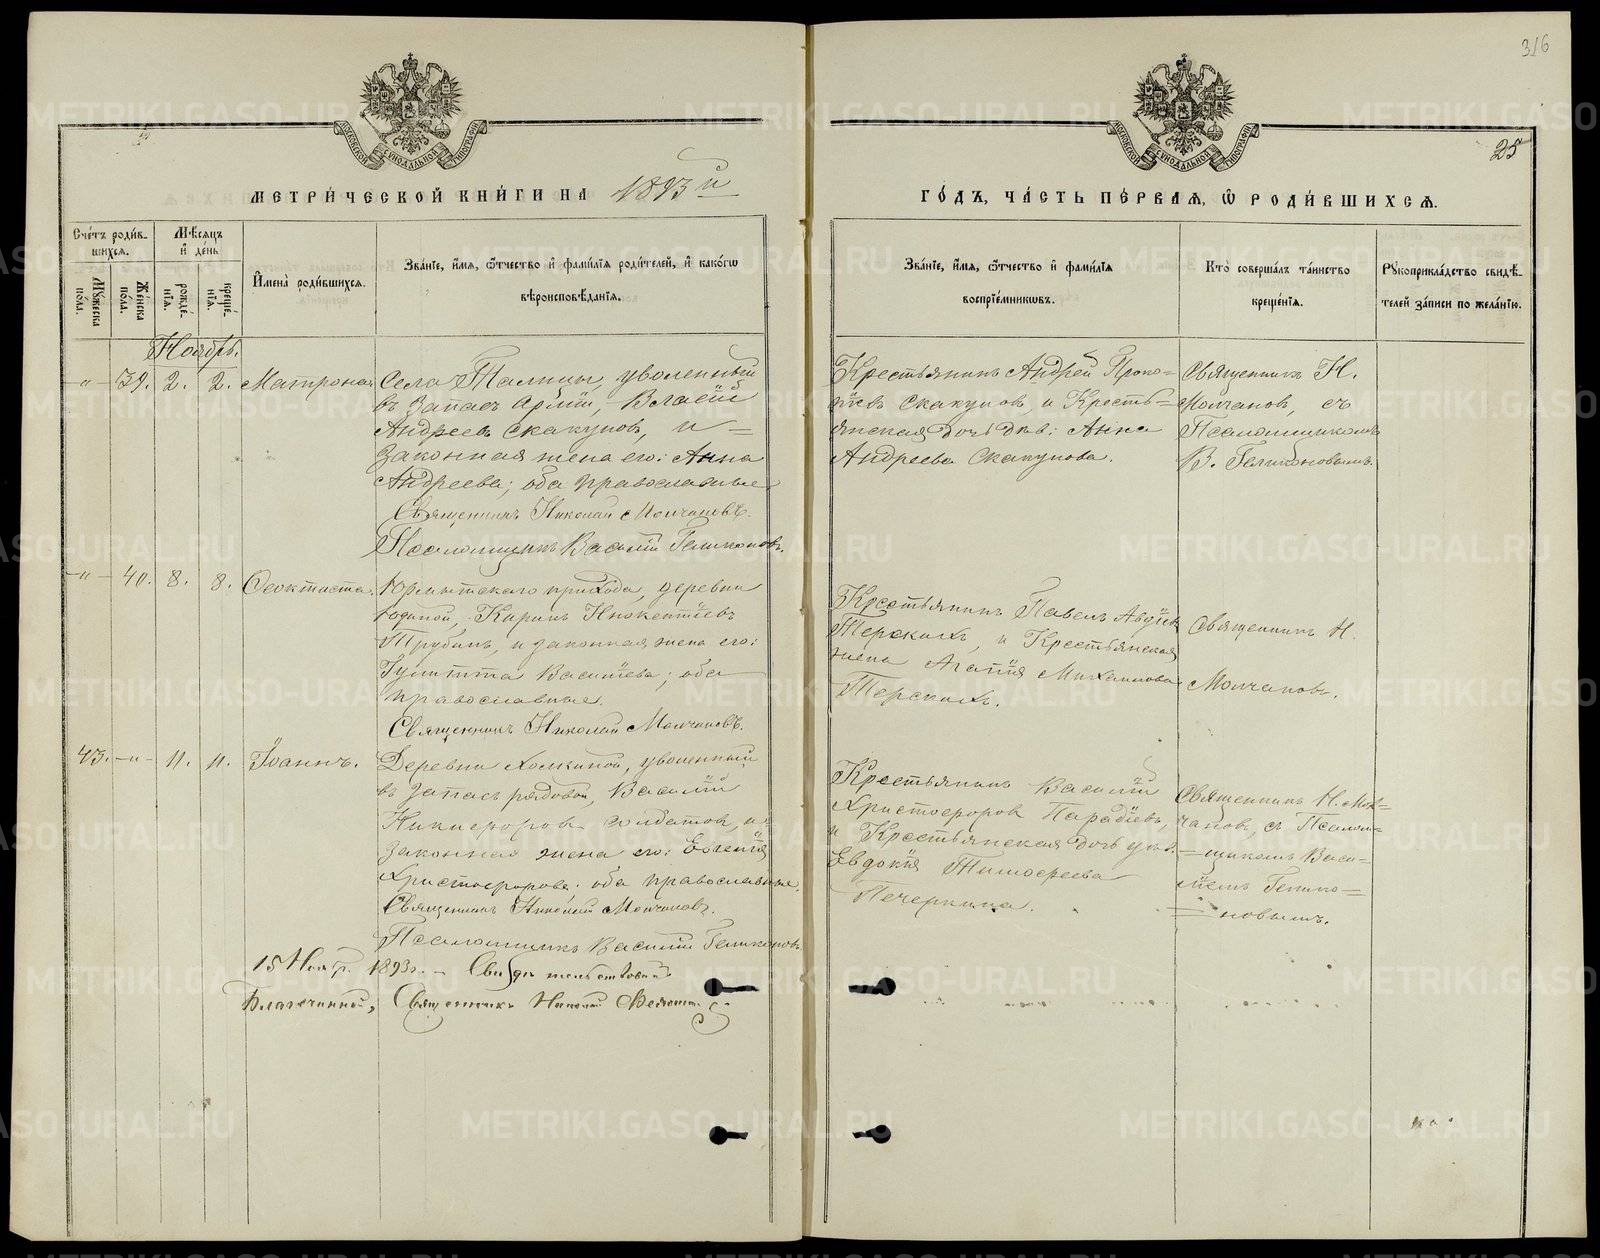 316
25
МОСКОВСКОЙ СѴНОДАЛЬНОЙ ТИПОГРАФІИ
МОСКОВСКОЙ СѴНОДАЛЬНОЙ ТИПОГРАФІИ
МЕТРИ́ЧЕСКОЙ КНИ́ГИ НА 1893й
ГО́ДЪ, ЧА́СТЬ ПЕ́РВАЯ, Ѡ РОДИ́ВШИХСЯ.
Сче́тъ роди́в-
шихся.
Мѣ́сяцъ
и҆ де́нь
Мꙋ́жеска
по́ла.
Же́нска
по́ла.
рожде́-
нїѧ.
креще́-
нїѧ.
И҆мена̀ роди́вшихся.
Зва́нїе, и҆́мя, ѻ҆́тчество и҆ фами́лїя роди́телей, и҆ како́гѡ
вѣроисповѣ́данїѧ.
Зва́нїе, и҆́мя, ѻ҆́тчество и҆ фами́лїя
воспрїе́мникѡвъ.
Кто̀ соверша́лъ та́инство
креще́нїѧ.
Рꙋкоприкла́дство свидѣ́-
телей за́писи по жела́нїю.
Ноябрь.
-"- 39. 2. 2. Матрона
Села Талицы, уволенный
въ запасъ Арміи,
Андреевъ Скакуновъ, и =
законная жена его: Анна
Андреева; оба православные
Священникъ Николай Молчановъ.
Псаломщикъ Василій Геликоновъ.
Крестьянинъ Андрей Проко=
піевъ Скакуновъ, и Кресть=
янская дочь дѣв: Анна
Андреева Скакунова.
Священникъ Н.
Молчановъ, съ
Псаломщикомъ
В. Геликоновымъ.
-"- 40. 8. 8. Ѳеоктиста.
Юрмытскаго прихода, деревни
Киринъ Инокентіевъ
Трубинъ, и законная жена его:
Іулитта Василіева; оба
православные.
Священникъ Николай Молчановъ.
Крестьянинъ Павелъ
Терскихъ, и Крестьянская
жена Агапія Михаилова
Терскихъ.
Священникъ Н.
Молчановъ.
43. -"- 11. 11. Іоаннъ.
Деревни уволенный
въ запасъ рядовой, Василій
Никифоровъ Солдатовъ, и
законная жена его: Евгенія
Христофорова: оба православные.
Священникъ Николай Молчановъ.
Псаломщикъ Василій Геликоновъ.
Крестьянинъ Василій
Христофоровъ
и Крестьянская дочь дѣв.
Евдокія Тимофеева
Печеркина.
Священникъ Н. Мол=
чановъ, съ Псалом=
=щикомъ Васи=
ліемъ Гелико=
=новымъ.
15 Нояб. 1893г. - Свидѣтельствовалъ
Благочинный, Священникъ Николай